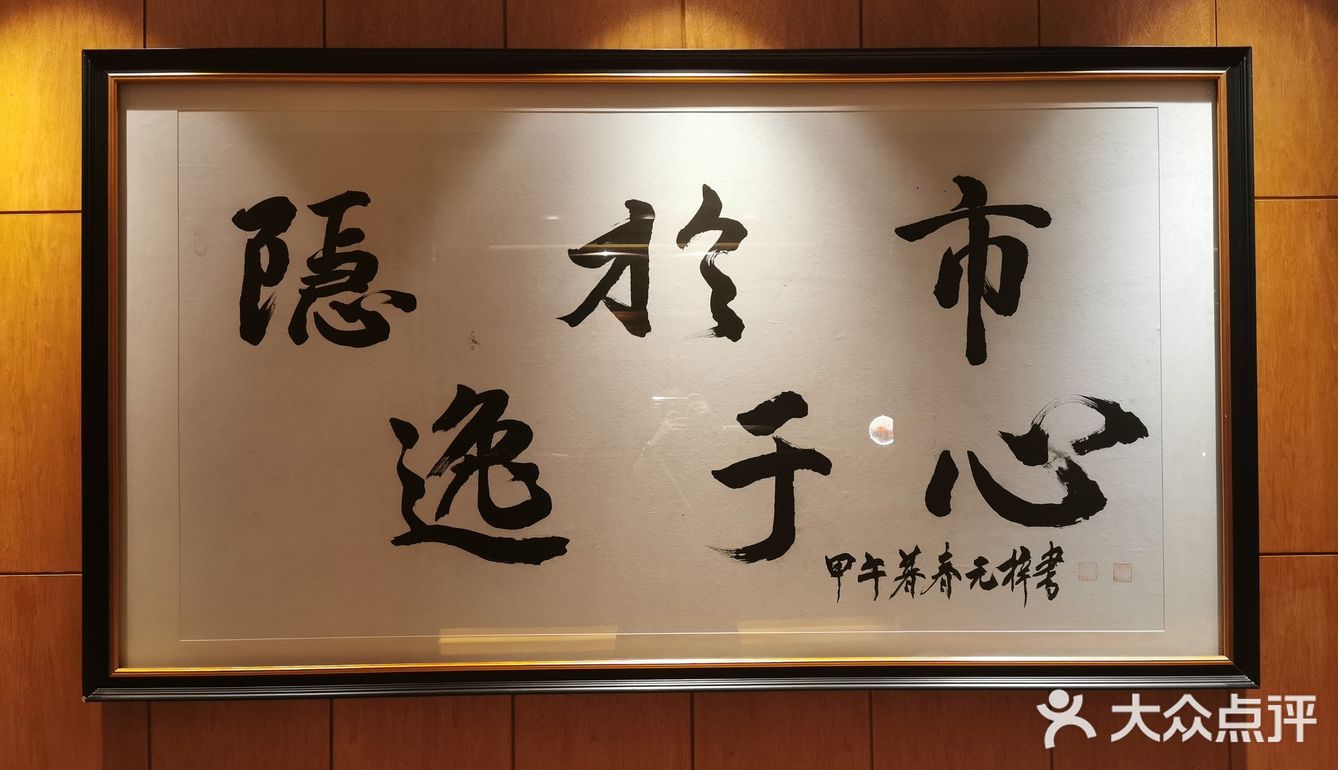 隱於市
逸于心
甲午暮春元梓書
大众点评